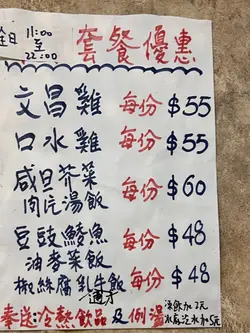 全日 11:00 至 22:00 套餐優惠
文昌雞 每份 $55
口水雞 每份 $55
咸旦芥菜
肉片湯飯 每份 $60
豆豉鯪魚
油麥菜飯 每份 $48
椒絲腐乳牛飯 每份 $48
通才
奉送:冷熱飲品及例湯 凍飲加2元
水
汽水加5元